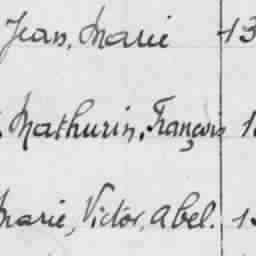 Jean, Marie 13
Mathurin, François 1
Marie, Victor, Abel. 1